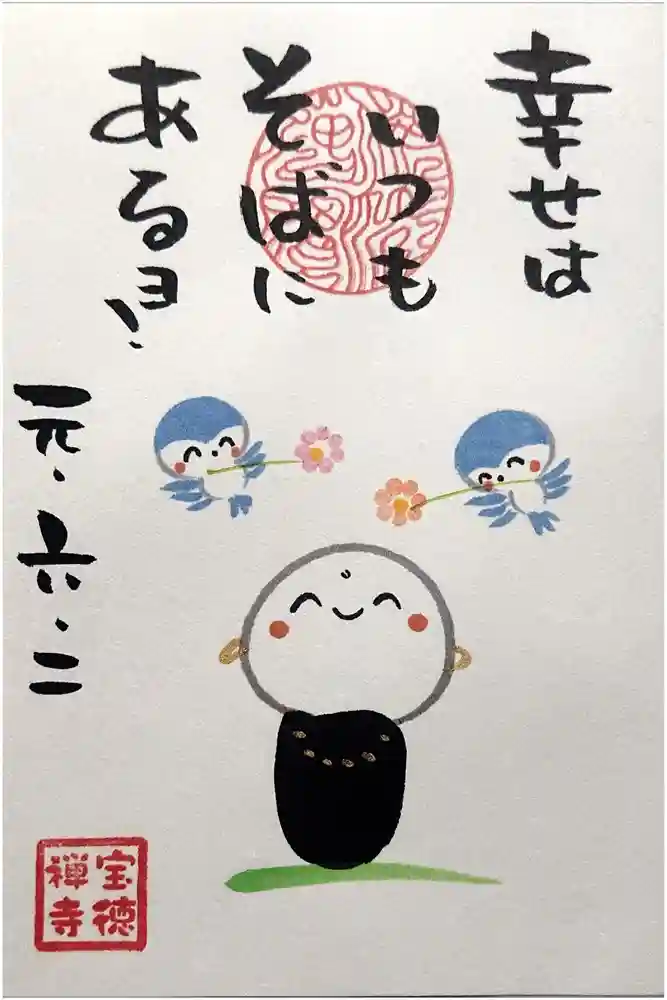 幸せは
いつも
そばに
あるヨ!
元・六・二
宝徳
禅寺